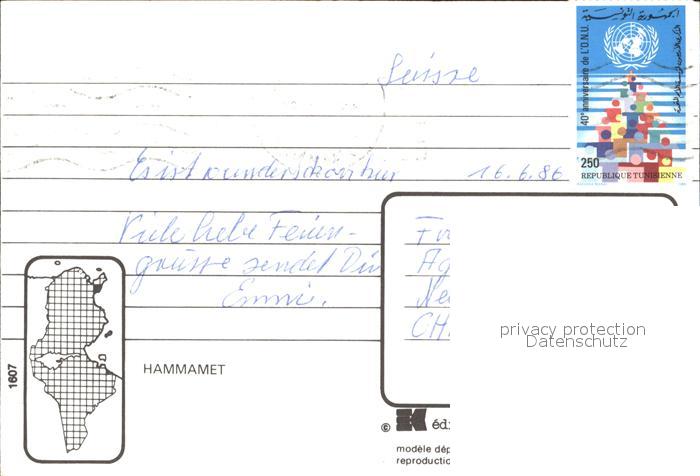 Suisse
الجمهورية التونسية
40e anniversaire de L'O.N.U.
250
REPUBLIQUE TUNISIENNE
Es ist wunderschön hier 16.6.86
Viele liebe Ferien-
grüsse sendet Dir
Emmi.
Fr
Ag
Ne
CH
privacy protection
Datenschutz
1607
HAMMAMET
© édi
modèle dép
reproductio